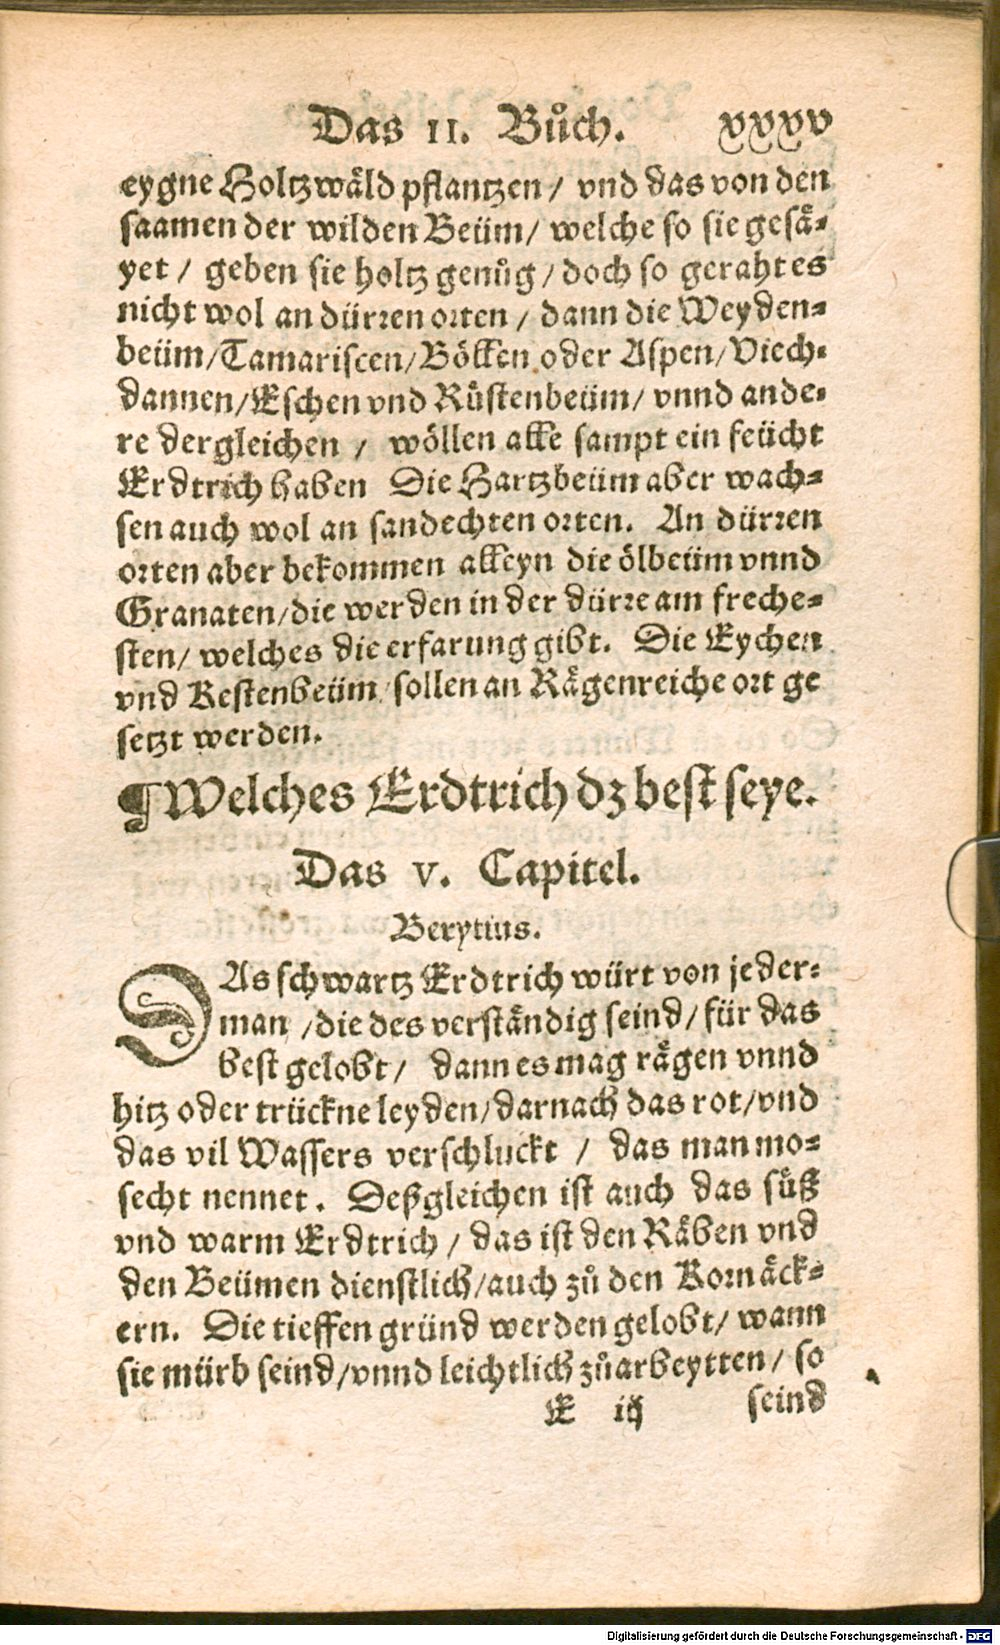 Das II. Bůch. xxxv
eygne Holtzwäld pflantzen/ vnd das von den
saamen der wilden Beüm/ welche so sie gesä-
yet / geben sie holtz genůg/doch so gerahtes
nicht wol an dürren orten / dann die Weyden-
beüm/Tamariscen/Böllen oder Aspen/Viech-
dannen/Eschen vnd Rüstenbeüm/ vnnd ande-
re dergleichen / wöllen alle sampt ein feücht
Erdtrich haben Die Hartzbeüm aber wach-
sen auch wol an sandechten orten. An dürren
orten aber bekommen alleyn die ölbeüm vnnd
Granaten/die werden in der dürre am freche-
sten/ welches die erfarung gibt. Die Eychen
vnd Kestenbeüm sollen an Rägenreiche ort ge
setzt werden.
¶Welches Erdtrich dz best seye.
Das V. Capitel.
Berytius.
DAs schwartz Erdtrich würt von jeder-
man /die des verständig seind/ für das
best gelobt/ dann es mag rägen vnnd
hitz oder trückne leyden/darnach das rot/vnd
das vil Wassers verschluckt / das man mo-
secht nennet. Deßgleichen ist auch das süß
vnd warm Erdtrich/ das ist den Räben vnd
den Beümen dienstlich/auch zů den Kornäck-
ern. Die tieffen gründ werden gelobt/ wann
sie mürb seind/vnnd leichtlich zůarbeytten/ so
E iij seind
Digitalisierung gefördert durch die Deutsche Forschungsgemeinschaft - DFG